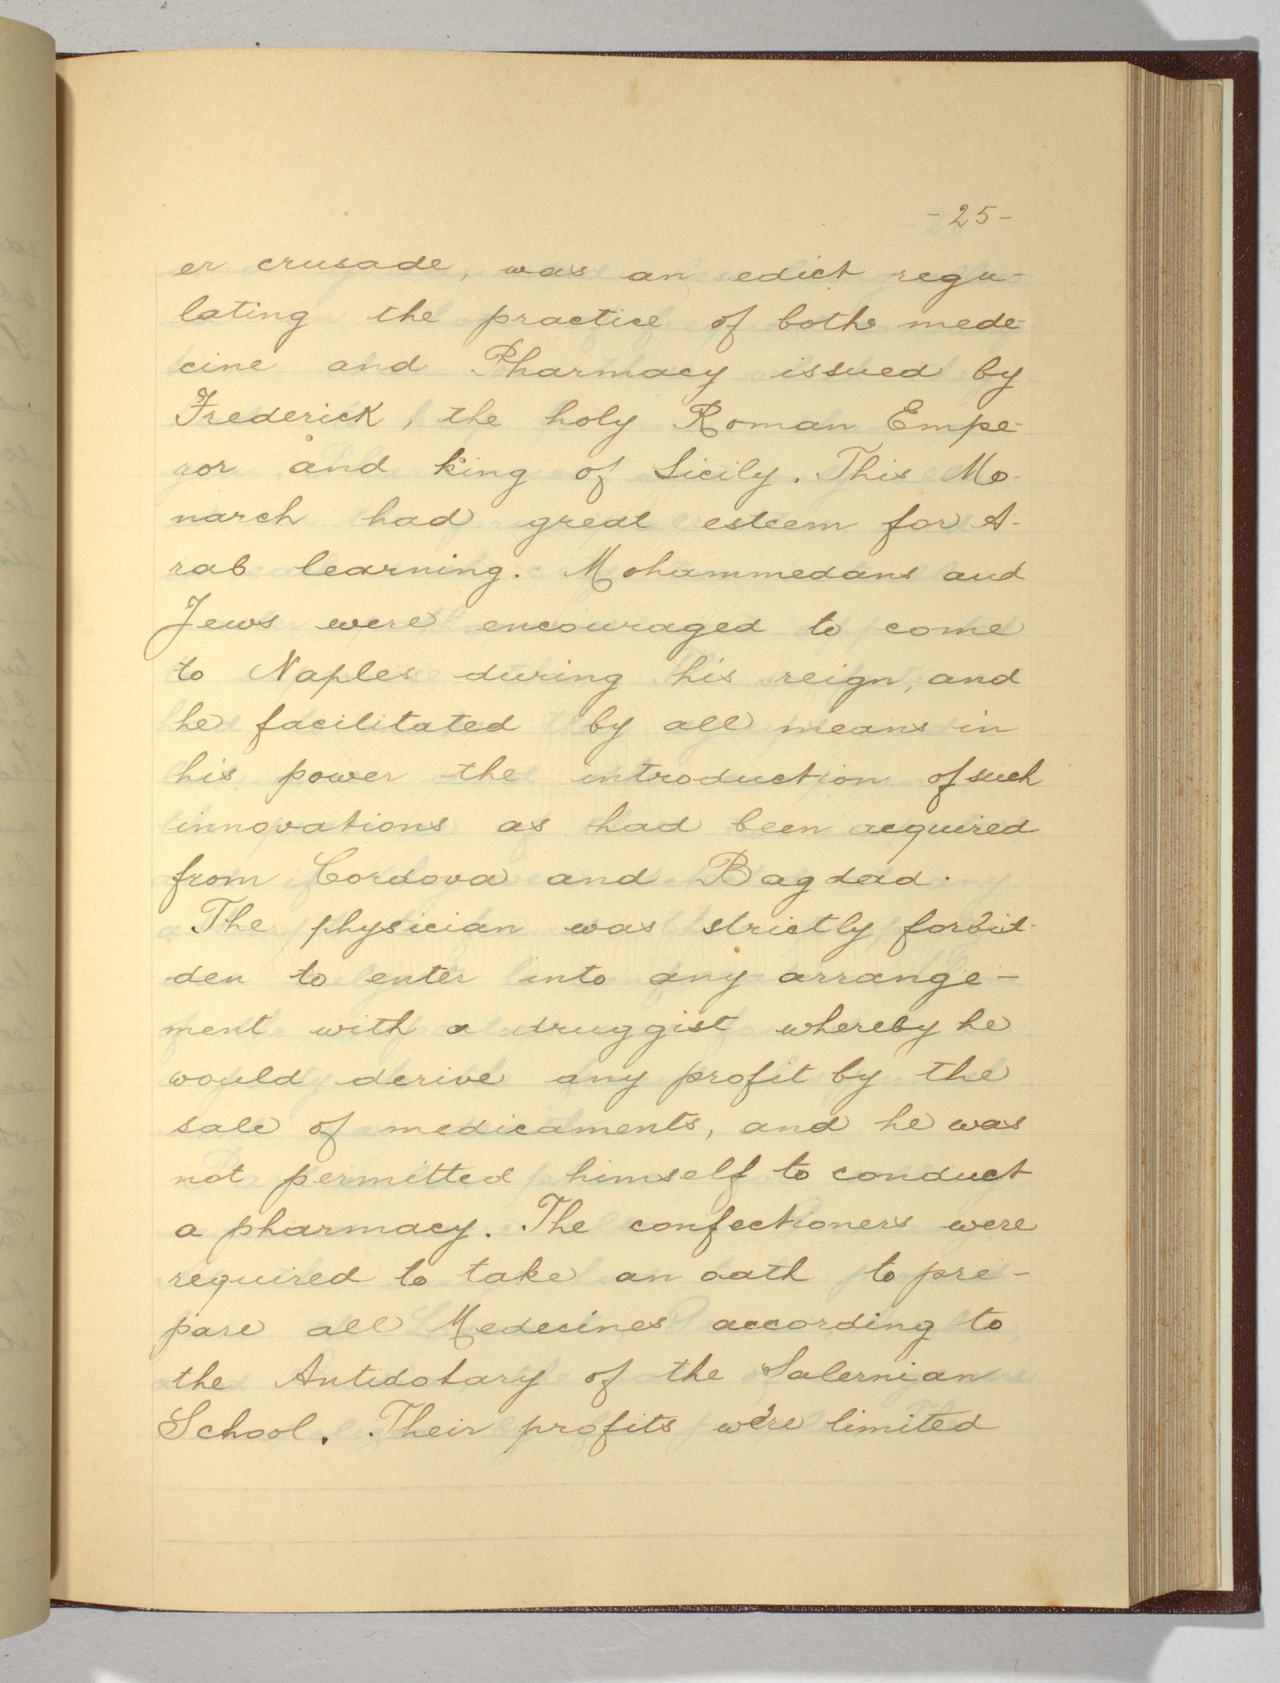 -25-
er crusade, was an edict regu-
lating the practice of both mede-
cine and Pharmacy issued by
Frederick, the holy Roman Empe-
ror and king of Sicily. This Mo-
narch had great esteem for A-
rab learning. Mohammedans and
Jews were encouraged to come
to Naples during his reign, and
he facilitated by all means in
his power the introduction of such
innovations as had been acquired
from Cordova and Bagdad.
The physician was strictly forbid-
den to enter into any arrange-
ment with a druggist whereby he
would derive any profit by the
sale of medicaments, and he was
not permitted himself to conduct
a pharmacy. The confectioners were
required to take an oath to pre-
pare all Medecines according to
the Antidotary of the Salernian
School. Their profits were limited